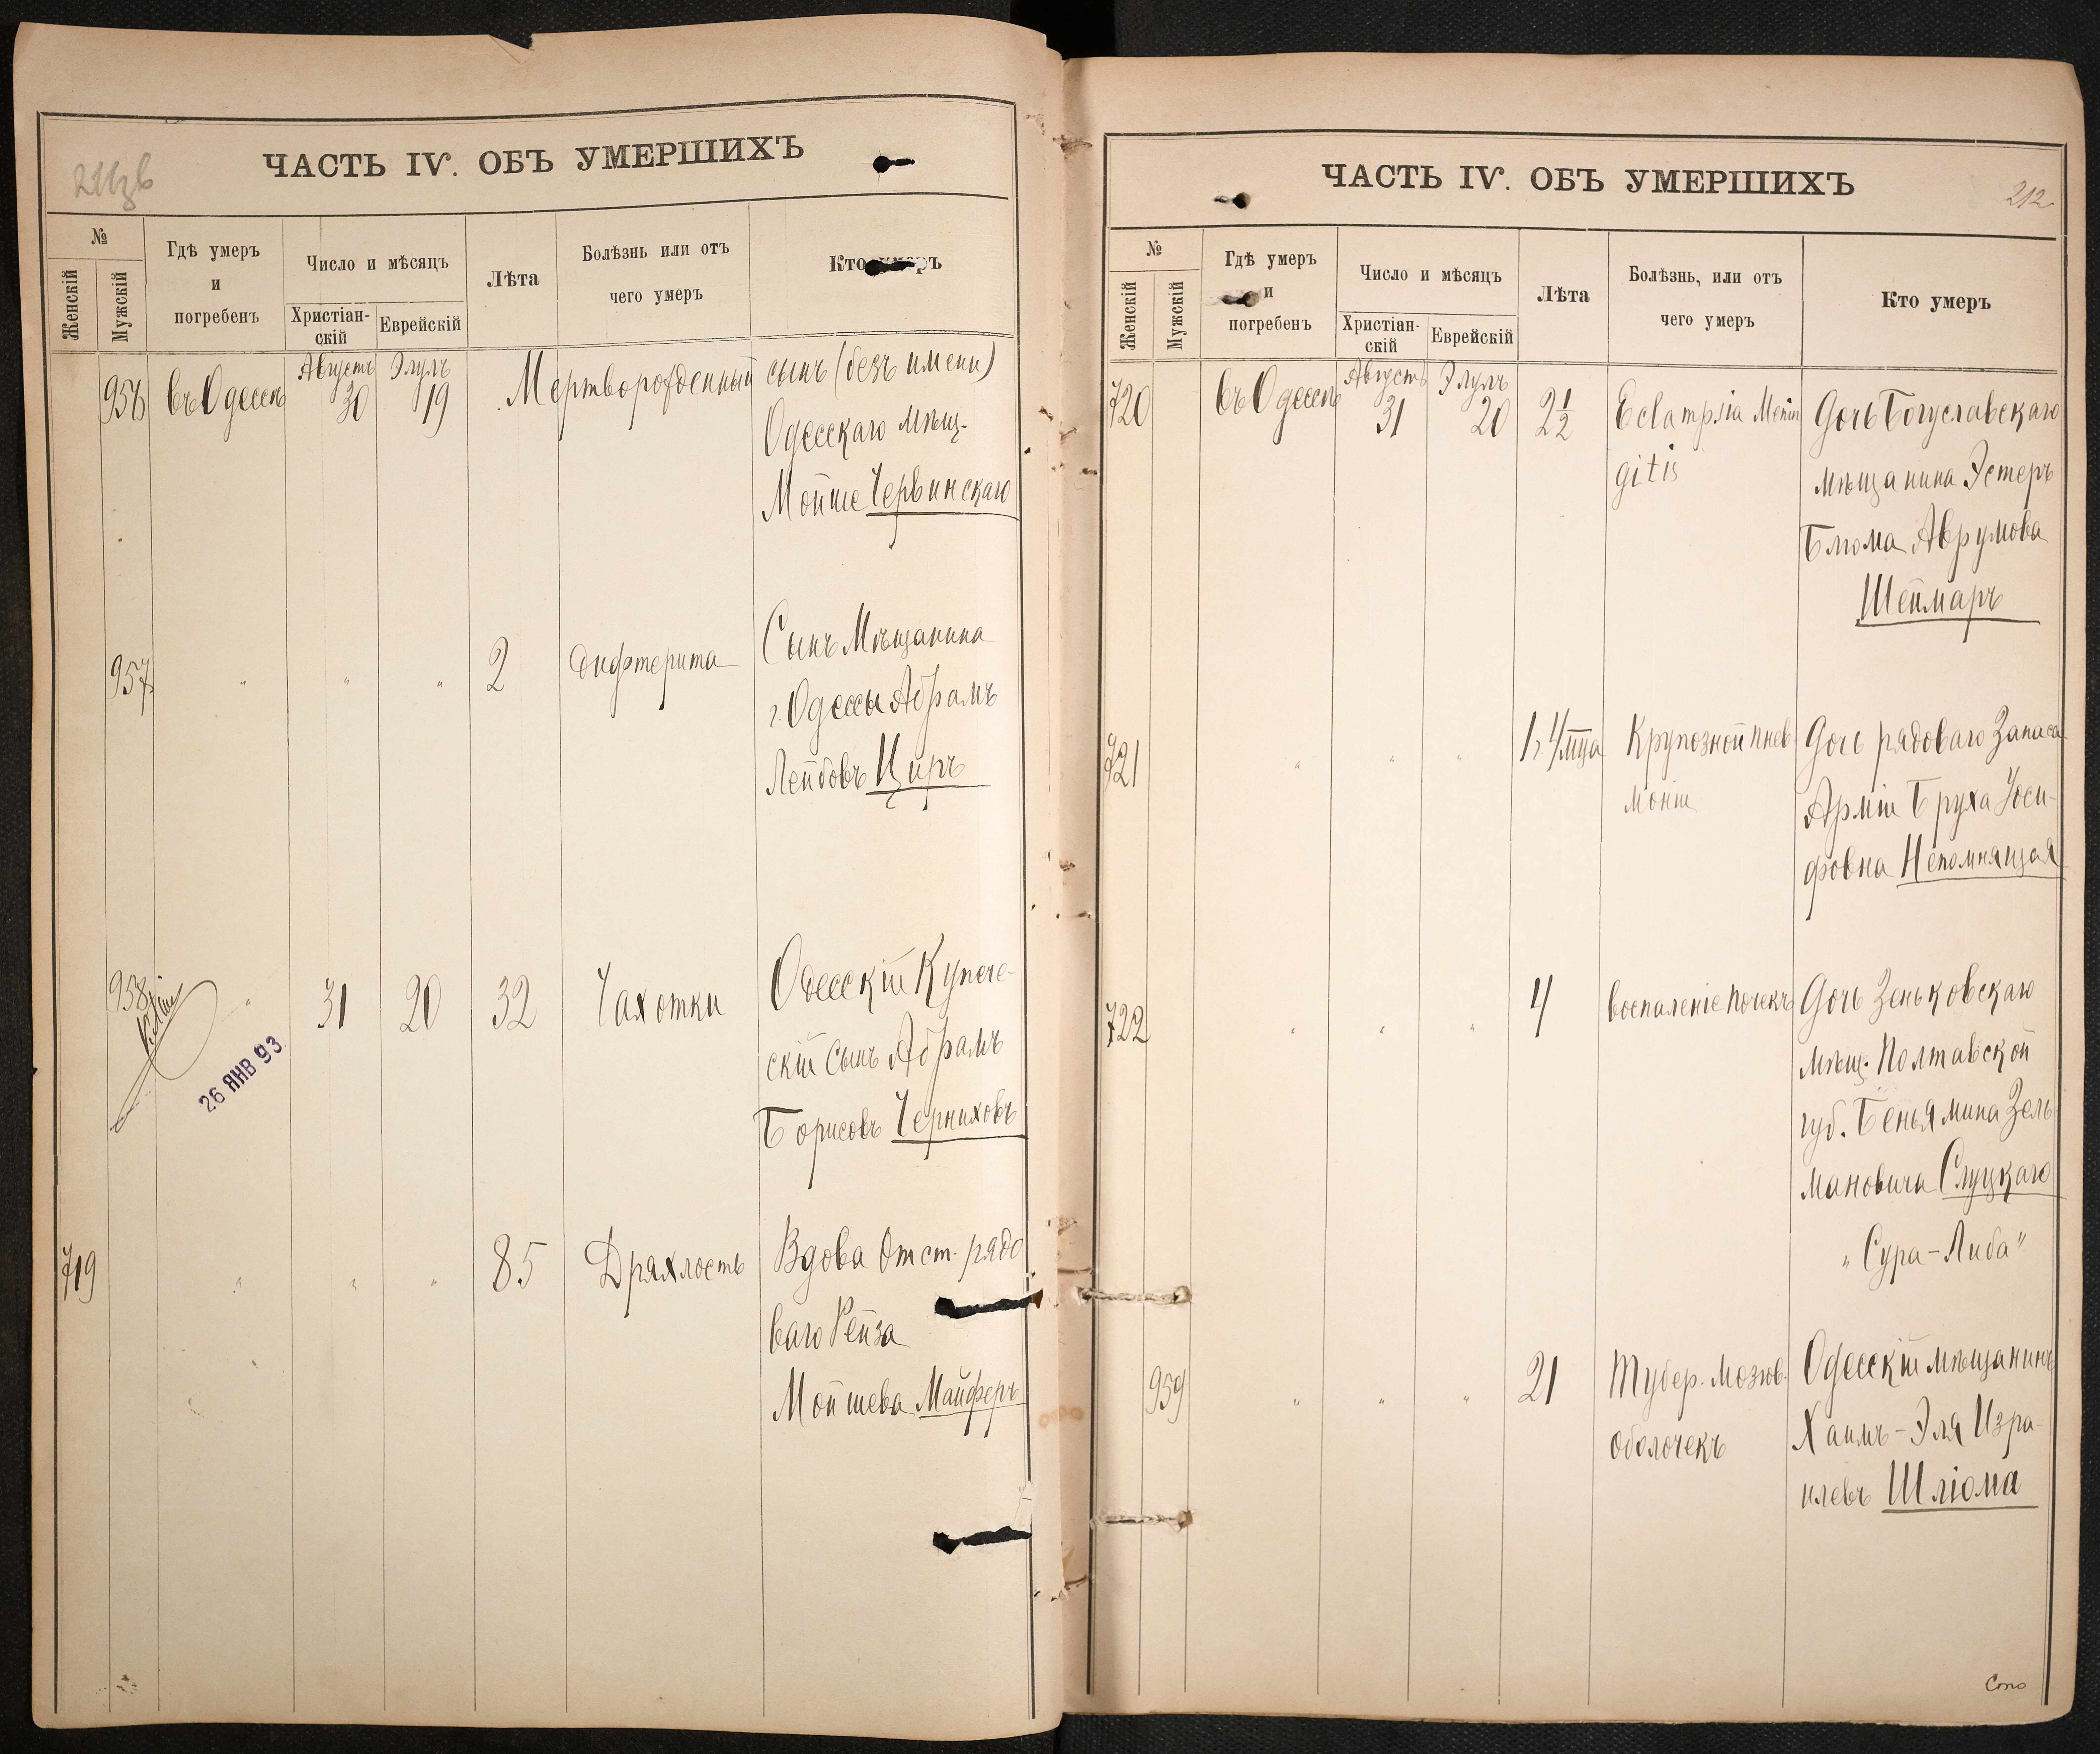 ЧАСТЬ IV. ОБЪ УМЕРШИХЪ
№
Женскій
Мужскій
Гдѣ умеръ
и
погребенъ
Число и мѣсяцъ
Христіан-
скій
Еврейскій
Лѣта
Болѣзнь или отъ
чего умеръ
Кто умеръ
956 въ Одессѣ Августъ 30 Элулъ 19 Мертворожденный сынъ (безъ имени)
Одесскаго мѣщ.
Мойше Червинскаго
957 " " " 2 Дифтерита Сынъ Мѣщанина
г. Одессы Абрамъ
Лейбовъ Циръ
958 " 31 20 32 Чахотки Одесскій Купече-
скій сынъ Абрамъ
Борисовъ Черниховъ
26 ЯНВ 93
719 " " " 85 Дряхлость Вдова Отст. рядо
ваго Рейза
Мойшева Майферъ
ЧАСТЬ IV. ОБЪ УМЕРШИХЪ
212
№
Женскій
Мужскій
Гдѣ умеръ
и
погребенъ
Число и мѣсяцъ
Христіан-
скій
Еврейскій
Лѣта
Болѣзнь, или отъ
чего умеръ
Кто умеръ
720 въ Одессѣ Августъ 31 Элулъ 20 2½ Eclampsia Menin Дочь Богуславскаго
gitis мѣщанина Эстеръ
Блюма Аврумова
Шеймаръ
721 " " " 1, 4/мца Крупозной пнев- Дочь рядоваго Запаса
моніи Арміи Бруха Іоси-
фовна Непомнящая
722 " " " 4 воспаленіе почекъ Дочь Зеньковскаго
мѣщ. Полтавской
губ. Беньямина Зель
мановича Слуцкаго
"Сура-Либа"
959 " " " 21 Тубер. мозгов. Одесскій мѣщанинъ
оболочекъ Хаимъ-Эля Изра-
илевъ Шліома
Сто